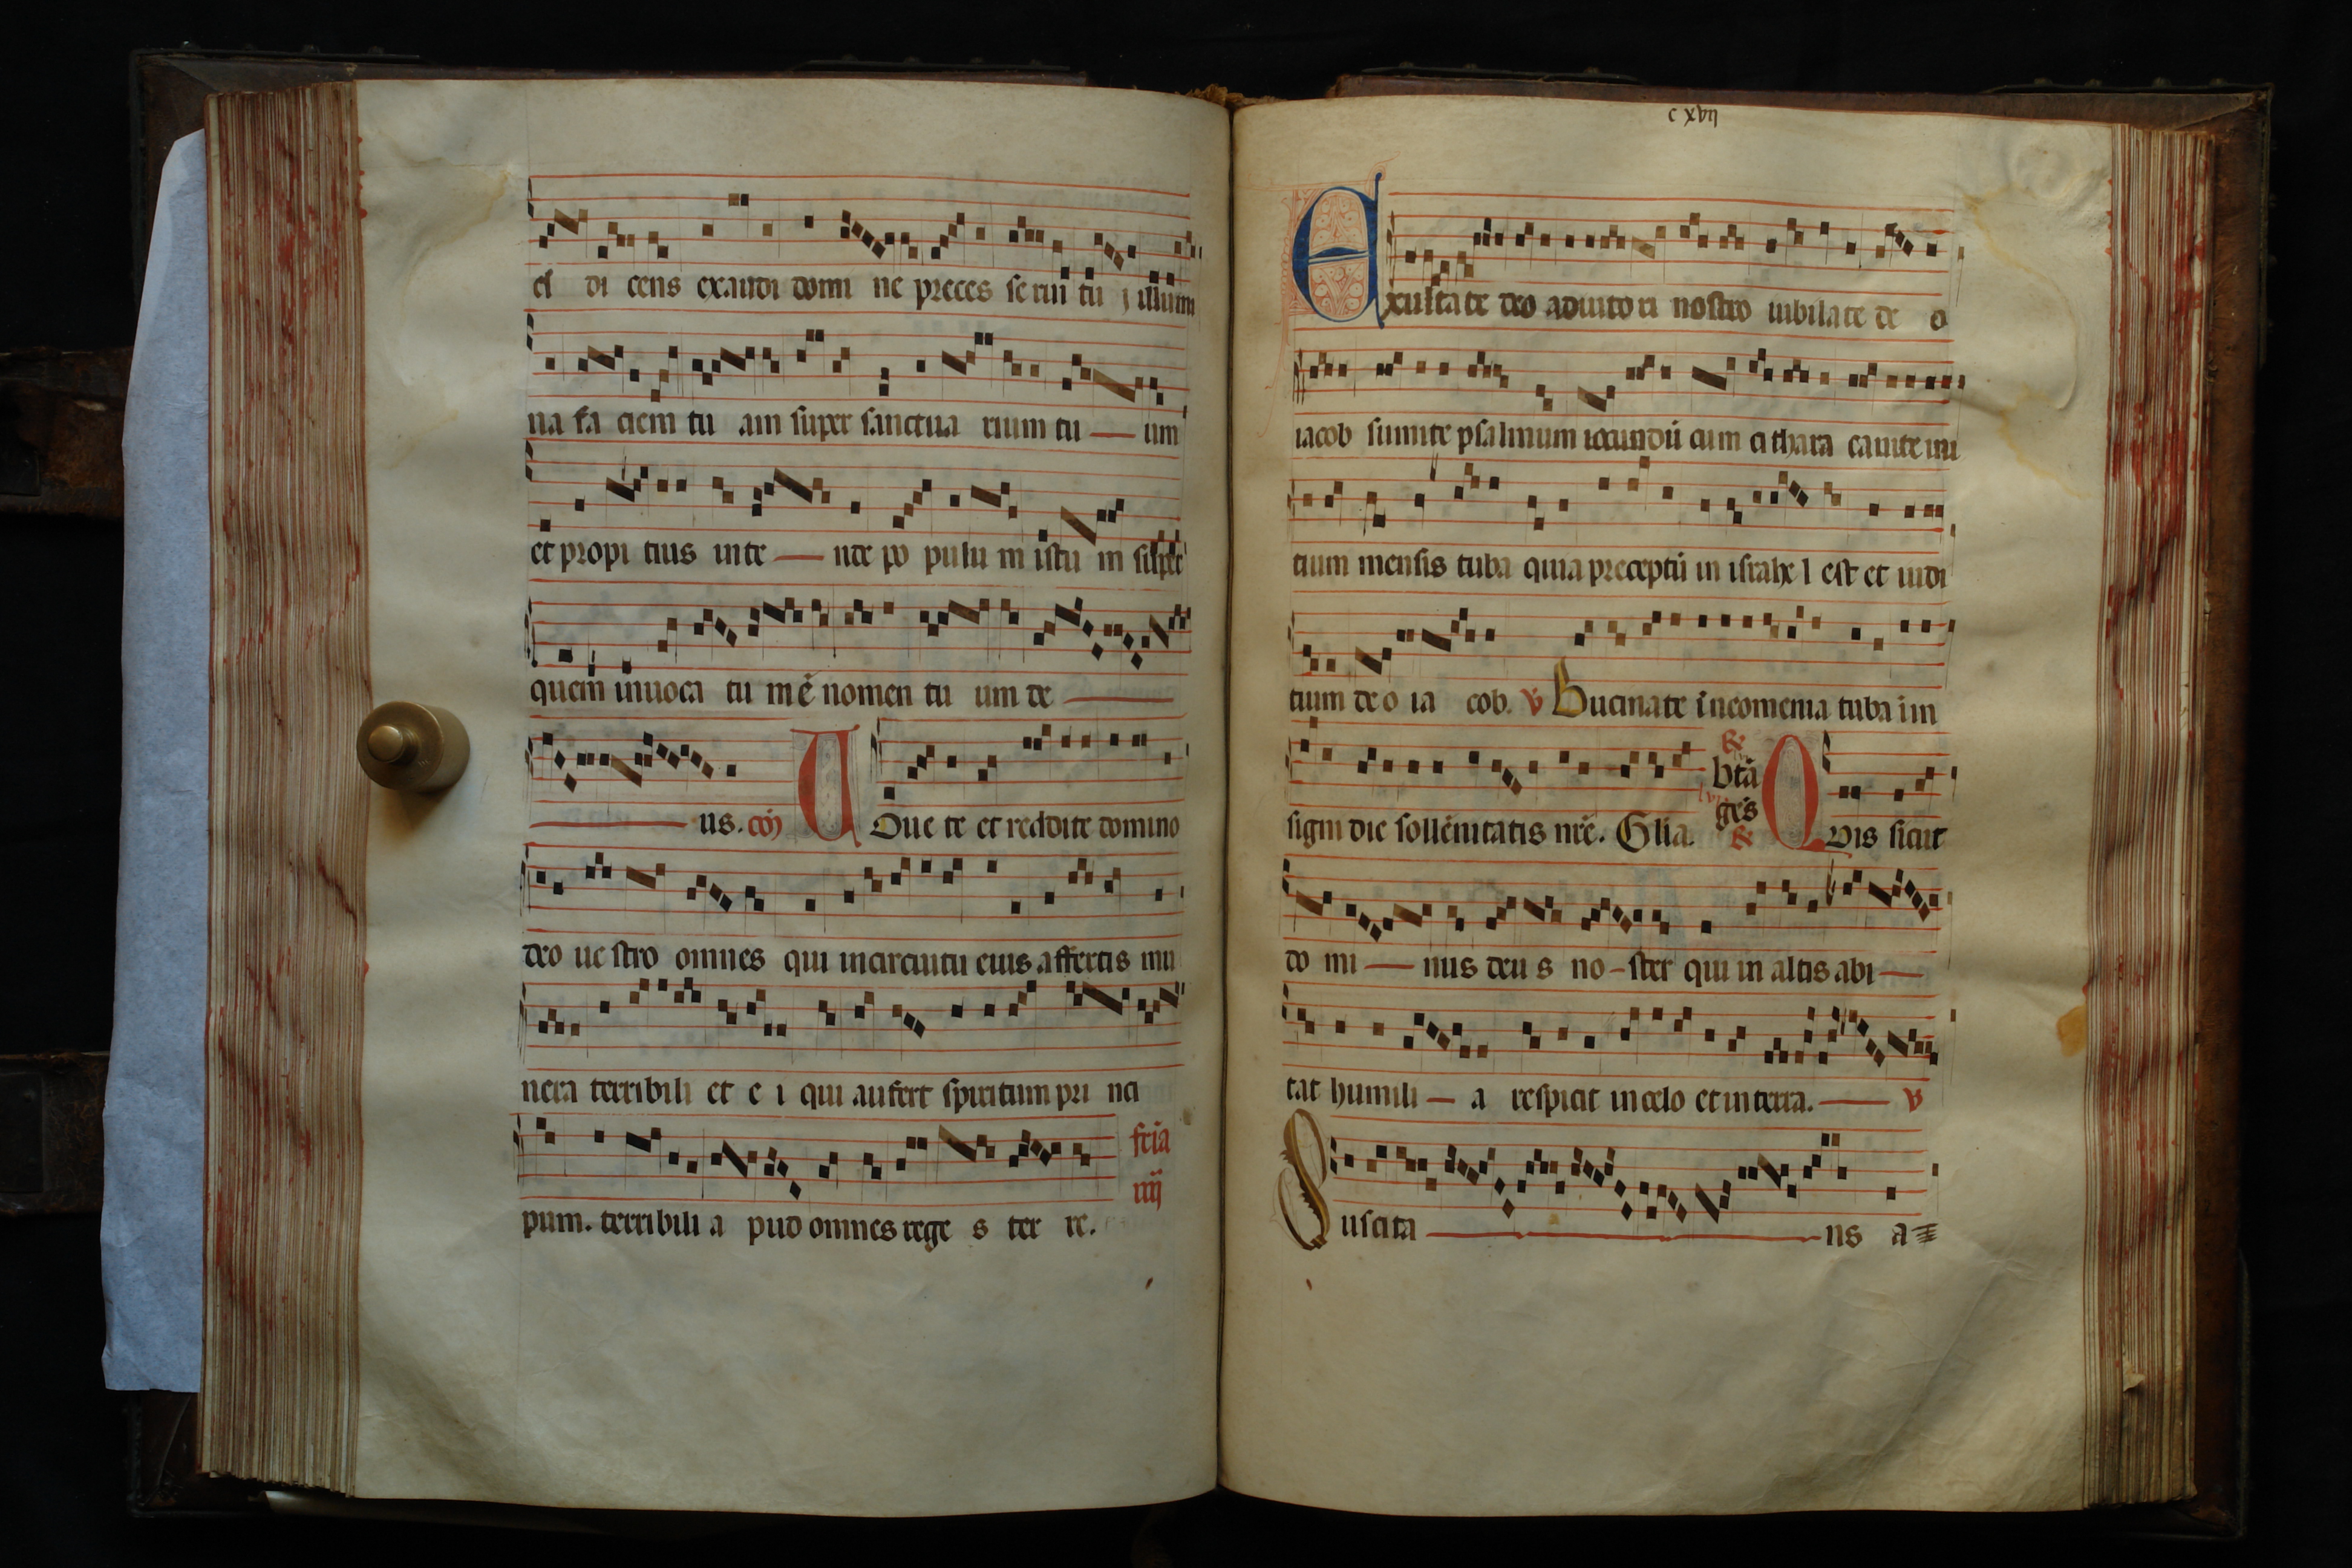 el di cens exaudi domi ne preces se rui tu j illumi
na fa ciem tu am super sanctua rium tu — um
et propi tius inte — nde po pulu m istu m super
quem inuoca tu mē nomen tu um de —
— us. cōj Voue te et reddite domino
deo ue stro omnes qui incircuitu eius affertis mu
nera terribili et e i qui aufert spiritum pri nci
feria
iiij
pum. terribili a pud omnes rege s ter re.
c xvij
Exultate deo adiutori nostro iubilate de o
iacob sumite psalmum iocundū cum cithara canite ini
tium mensis tuba quia preceptū in israhe l est et iudi
tium de o ia cob. v Bucinate i neomenia tuba i in
signi die sollēnitatis nrē. Glia.
btā
gēs
Quis sicut
do mi — nus deu s no – ster qui in altis abi —
tat humili — a respicit incelo et in terra. — v
Suscita — ns a